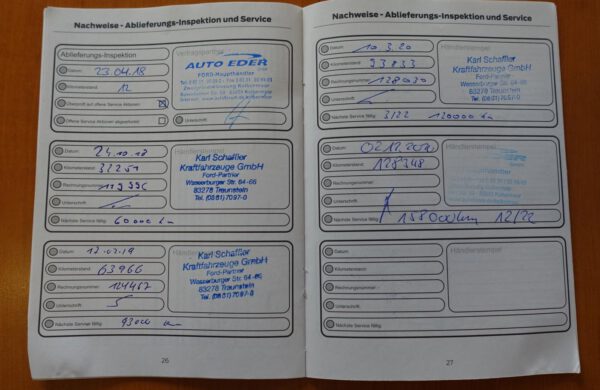 Nachweise - Ablieferungs-Inspektion und Service
Ablieferungs-Inspektion
Vertragspartner
Datum: 23.04.18
Kilometerstand: 12
Überprüft auf offene Service Aktionen
Offene Service Aktionen abgearbeitet
Unterschrift:
AUTO EDER
FORD-Haupthändler
Datum: 24.10.18
Kilometerstand: 32251
Rechnungsnummer:
Unterschrift:
Nächste Service fällig: 60000 km
Karl Schaffler
Kraftfahrzeuge GmbH
Ford-Partner
Wasserburger Str. 64-66
83278 Traunstein
Tel. (0861) 7097-0
Datum:
Kilometerstand: 63966
Rechnungsnummer: 124462
Unterschrift:
Nächste Service fällig: 93000 km
Karl Schaffler
Kraftfahrzeuge GmbH
Ford-Partner
Wasserburger Str. 64-66
83278 Traunstein
Tel. (0861) 7097-0
26
Nachweise - Ablieferungs-Inspektion und Service
Datum: 10.3.20
Kilometerstand: 93833
Rechnungsnummer: 128030
Unterschrift:
Nächste Service fällig: 3/22 120000 km
Händlerstempel
Karl Schaffler
Kraftfahrzeuge GmbH
Ford-Partner
Wasserburger Str. 64-66
83278 Traunstein
Tel. (0861) 7097-0
Datum: 02.12.2020
Kilometerstand: 128348
Rechnungsnummer:
Unterschrift:
Nächste Service fällig: 158000km 12/22
Händlerstempel
Datum:
Kilometerstand:
Rechnungsnummer:
Unterschrift:
Nächste Service fällig:
Händlerstempel
27